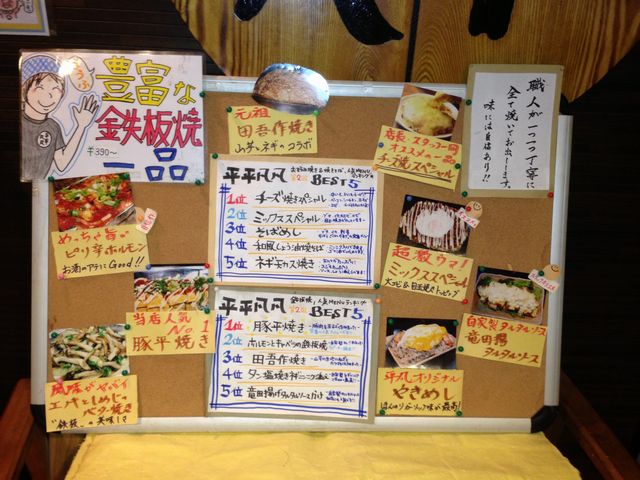 豊富な
鉄板焼
一品
¥390〜
元祖
田吾作焼き
山芋とネギのコラボ
店長・スタッフ一同
オススメの一品
チーズ焼スペシャル
職人が一つ一つ丁寧に
全て焼いてお出しします。
味には自信あり!!
平平凡凡
BEST5
1位 チーズ焼きスペシャル
2位 ミックススペシャル
3位 そばめし
4位 和風しょう油焼そば
5位 ネギ天カス焼き
めっちゃ旨い
ピリ辛ホルモン
お酒のアテにGood!!
超激ウマ!
ミックススペシャル
大エビ&目玉焼きトッピング
当店人気
No.1
豚平焼き
平平凡凡
BEST5
1位 豚平焼き
2位 ホルモンとキャベツの鉄板焼
3位 田吾作焼き
4位 タン塩焼き
5位 竜田揚げタルタルソースがけ
自家製タルタルソース
竜田揚
タルタルソース
風味がヤバイ
エリンギとしめじの
バター焼き
"鉄板"の美味しさ
平凡オリジナル
やきめし
ほんのりガーリック味が最高!